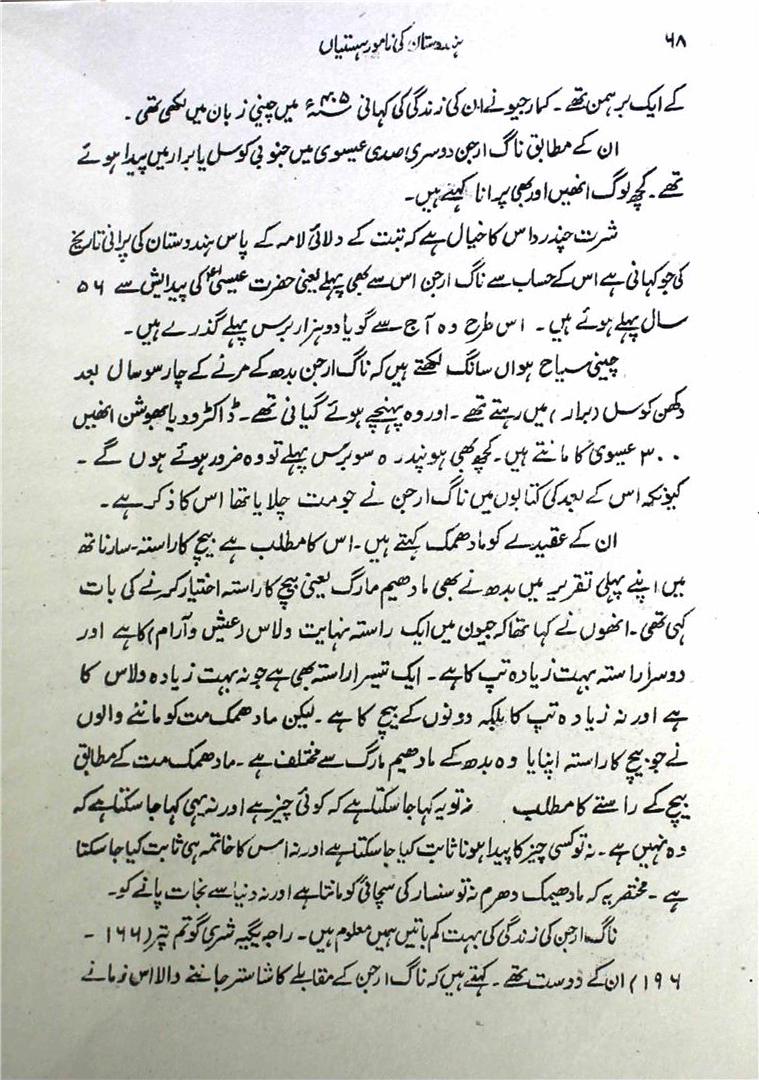 ۶۸
ہندوستان کی نامور ہستیاں
کے ایک برہمن تھے۔ کمارجیو نے ان کی زندگی کی کہانی ۴۰۵ء میں چینی زبان میں لکھی تھی۔
ان کے مطابق ناگ ارجن دوسری صدی عیسوی میں جنوبی کوسل یا برار میں پیدا ہوئے
تھے۔ کچھ لوگ انھیں اور بھی پرانا کہتے ہیں۔
شرت چندر داس کا خیال ہے کہ تبت کے دلائی لامہ کے پاس ہندوستان کی پرانی تاریخ
کی جو کہانی ہے اس کے حساب سے ناگ ارجن اس سے بھی پہلے یعنی حضرت عیسیٰؑ کی پیدایش سے ۵۶
سال پہلے ہوئے ہیں۔ اس طرح وہ آج سے گویا دو ہزار برس پہلے گذرے ہیں۔
چینی سیاح ہواں سانگ لکھتے ہیں کہ ناگ ارجن بدھ کے مرنے کے چار سو سال بعد
دکھن کوسل (برار) میں رہتے تھے۔ اور وہ پہنچے ہوئے گیانی تھے۔ ڈاکٹر ودیا بھوشن انھیں
۳۰۰ عیسوی کا مانتے ہیں۔ کچھ بھی ہو پندرہ سو برس پہلے تو وہ ضرور ہوئے ہوں گے۔
کیونکہ اس کے بعد کی کتابوں میں ناگ ارجن نے جو مت چلایا تھا اس کا ذکر ہے۔
ان کے عقیدے کو مادھمک کہتے ہیں۔ اس کا مطلب ہے بیچ کا راستہ۔ سارناتھ
میں اپنے پہلی تقریر میں بدھ نے بھی مادھیم مارگ یعنی بیچ کا راستہ اختیار کرنے کی بات
کہی تھی۔ انھوں نے کہا تھا کہ جیون میں ایک راستہ نہایت ولاس (عیش و آرام) کا ہے اور
دوسرا راستہ بہت زیادہ تپ کا ہے۔ ایک تیسرا راستہ بھی ہے جو نہ بہت زیادہ ولاس کا
ہے اور نہ زیادہ تپ کا بلکہ دونوں کے بیچ کا ہے۔ لیکن مادھمک مت کو ماننے والوں
نے جو بیچ کا راستہ اپنایا وہ بدھ کے مادھیم مارگ سے مختلف ہے۔ مادھمک مت کے مطابق
بیچ کے راستے کا مطلب نہ تو یہ کہا جا سکتا ہے کہ کوئی چیز ہے اور نہ یہی کہا جا سکتا ہے کہ
وہ نہیں ہے۔ نہ تو کسی چیز کا پیدا ہونا ثابت کیا جا سکتا ہے اور نہ اس کا خاتمہ ہی ثابت کیا جا سکتا
ہے۔ مختصر یہ کہ مادھیمک دھرم نہ تو سنسار کی سچائی کو مانتا ہے اور نہ دنیا سے نجات پانے کو۔
ناگ ارجن کی زندگی کی بہت کم باتیں ہمیں معلوم ہیں۔ راجہ یگیہ شری گوتم پتر (۱۶۶۔
۱۹۶) ان کے دوست تھے۔ کہتے ہیں کہ ناگ ارجن کے مقابلے کا شاستر جاننے والا اس زمانے